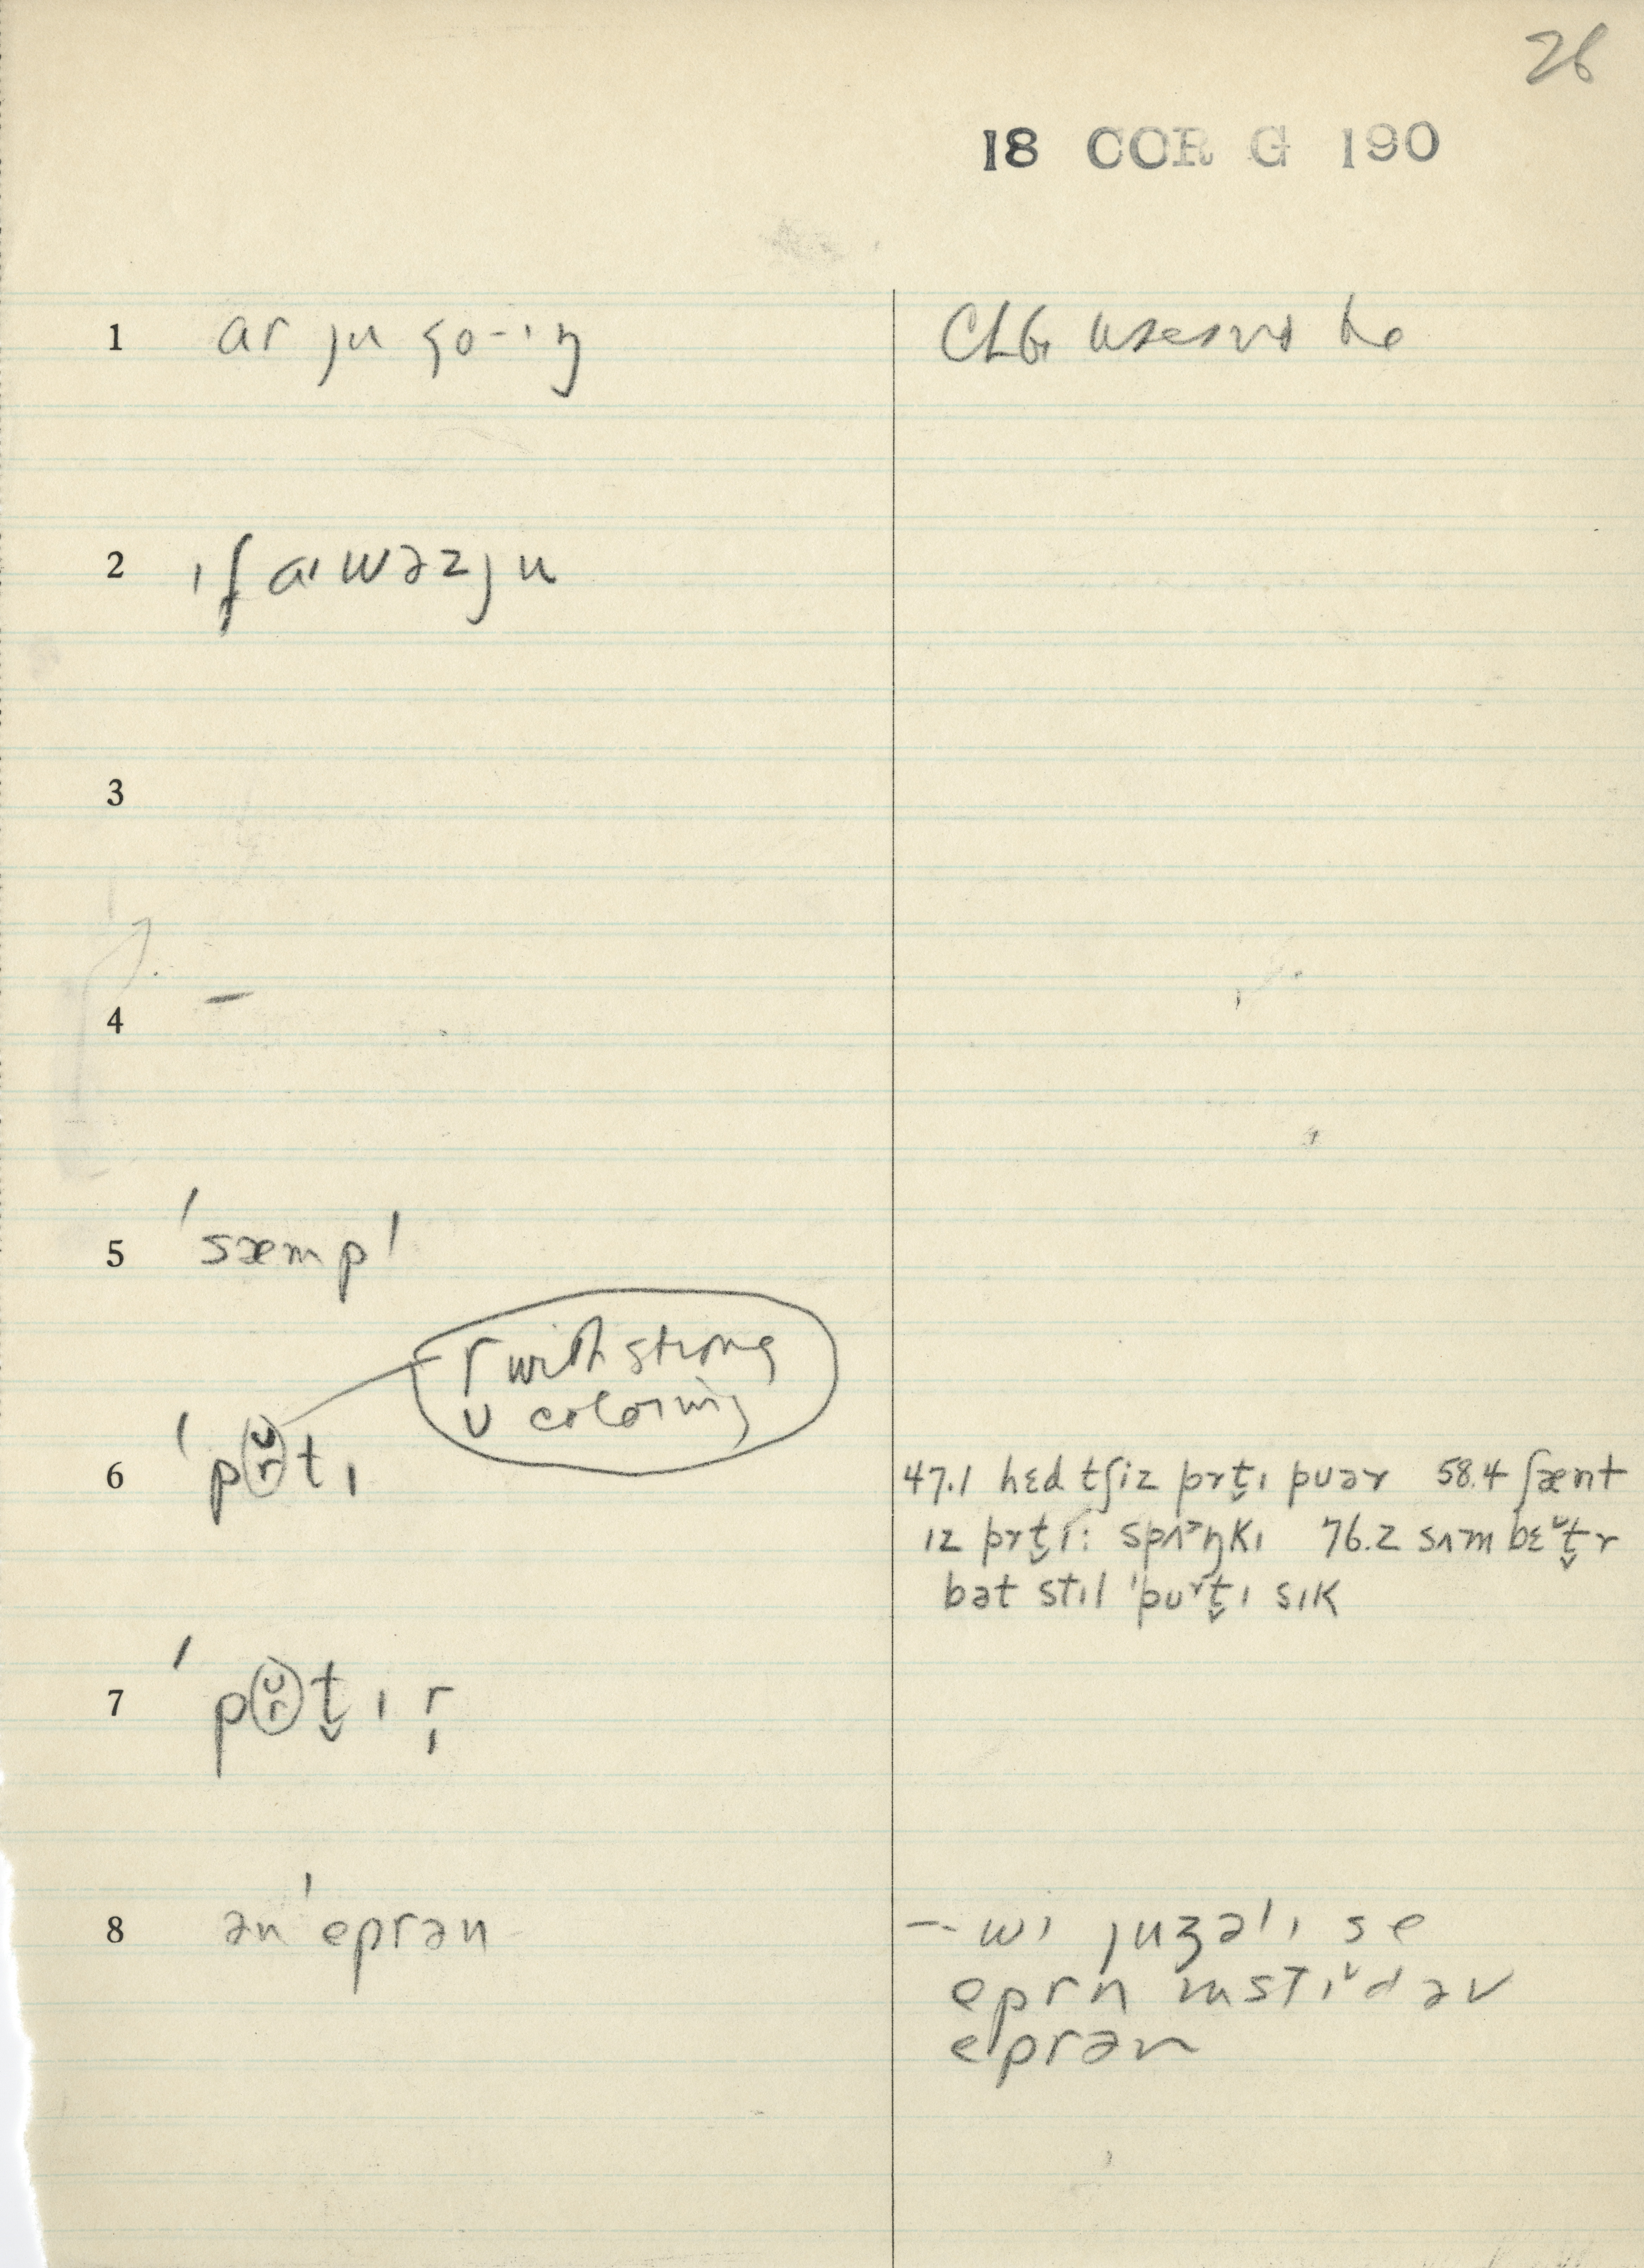 26
18 COR G 190
1 ar ju go-ɪŋ
2 ɪf aɪ wəz ju
3
4 –
5 'sæmpl
r with strong
ᴜ coloring
6 'pr̆tɪ
47.1 hɛd tʃiz prt̬ɪ puər 58.4 ʃænt
ɪz prt̬ɪ: spʌŋkɪ 76.2 sʌm bɛt̬r
bət stɪl 'pᴜʳt̬ɪ sɪk
7 'pr̆t̬ɪr̩
8 ən 'eprən
– wɪ juʒəlɪ se
eprn ɪnstɪd əv
eprən